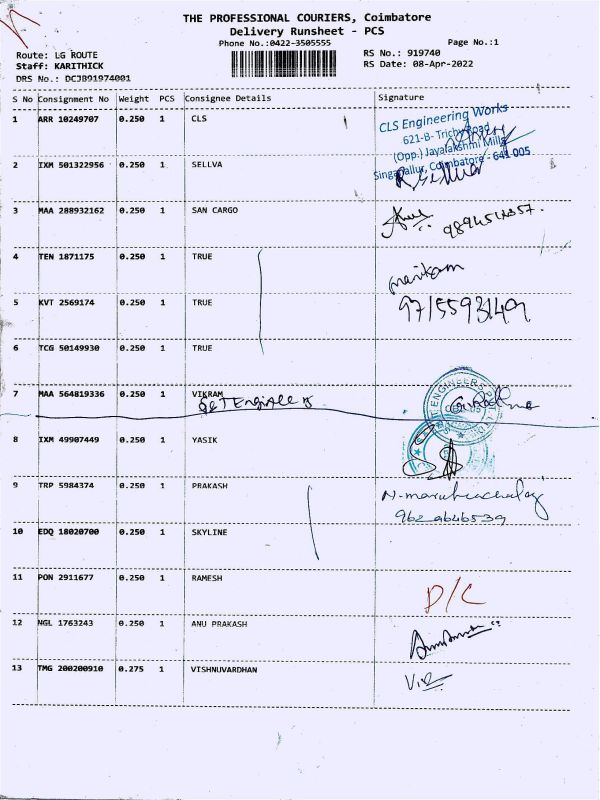 THE PROFESSIONAL COURIERS, Coimbatore
Delivery Runsheet - PCS
Phone No.:0422-3505555
Page No.:1
Route: LG ROUTE
RS No.: 919740
Staff: KARITHICK
RS Date: 08-Apr-2022
DRS No.: DCJB91974001
S No Consignment No Weight PCS Consignee Details Signature
1 ARR 10249707 0.250 1 CLS
CLS Engineering Works
621-B- Trichy Road
(Opp.) Jayalakshmi Mills
Singanallur, Coimbatore - 641 005
2 IXM 501322956 0.250 1 SELLVA
3 MAA 288932162 0.250 1 SAN CARGO
4 TEN 1871175 0.250 1 TRUE
5 KVT 2569174 0.250 1 TRUE
9715593149
6 TCG 50149930 0.250 1 TRUE
7 MAA 564819336 0.250 1 VIKRAM
Engineers
8 IXM 49907449 0.250 1 YASIK
9 TRP 5984374 0.250 1 PRAKASH
9629646539
10 EDQ 18020700 0.250 1 SKYLINE
11 PON 2911677 0.250 1 RAMESH D/C
12 NGL 1763243 0.250 1 ANU PRAKASH
13 TMG 200200910 0.275 1 VISHNUVARDHAN